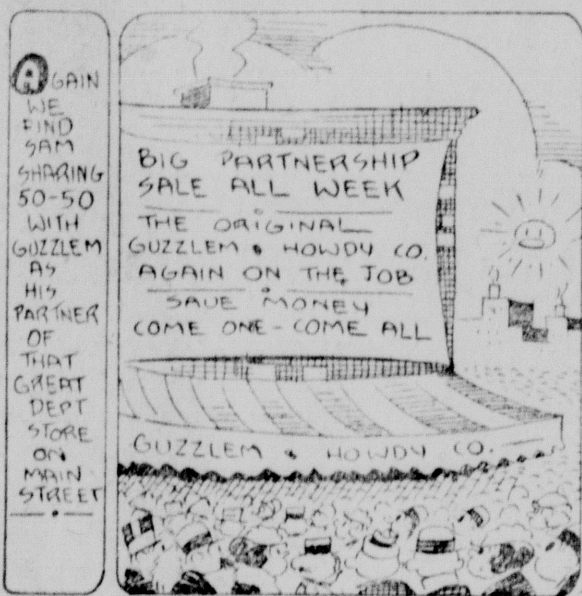 AGAIN
WE
FIND
SAM
SHARING
50-50
WITH
GUZZLEM
AS
HIS
PARTNER
OF
THAT
GREAT
DEPT
STORE
ON
MAIN
STREET
BIG PARTNERSHIP
SALE ALL WEEK
THE ORIGINAL
GUZZLEM & HOWDY CO.
AGAIN ON THE JOB
SAVE MONEY
COME ONE - COME ALL
GUZZLEM & HOWDY CO.